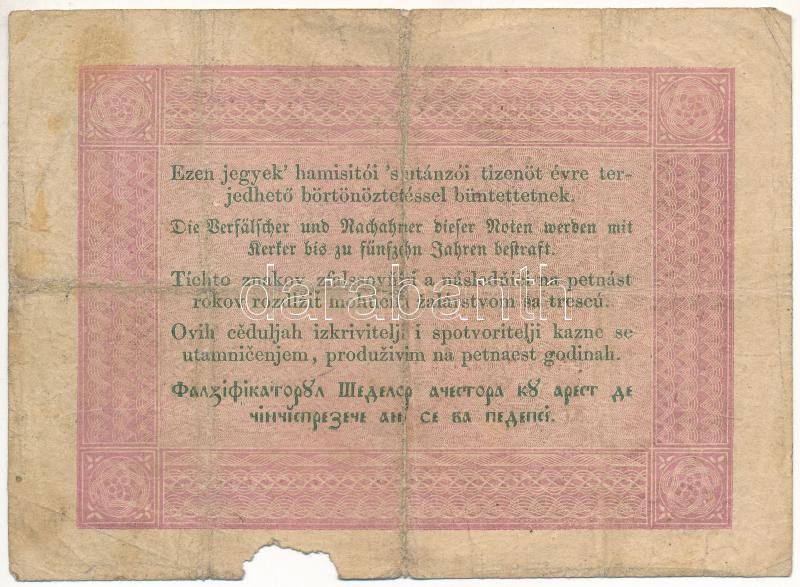 Ezen jegyek' hamisitói 's utánzói tizenöt évre ter-
jedhető börtönöztetéssel büntettetnek.
Die Verfälscher und Nachahmer dieser Noten werden mit
Kerker bis zu fünfzehn Jahren bestraft.
Tíchto znakov zfalšovňíci a následňíci na petnást
rokov rozdlžiť mohúcím žalárstvom sa trescú.
darabanth
Ovih cĕduljah izkrivitelji i spotvoritelji kazne se
utamničenjem, produživim na petnaest godinah.
Фалзіфікаторꙋл Шеделор ачестора кꙋ арест де
чінчіспрезече ані се ва педепсі.